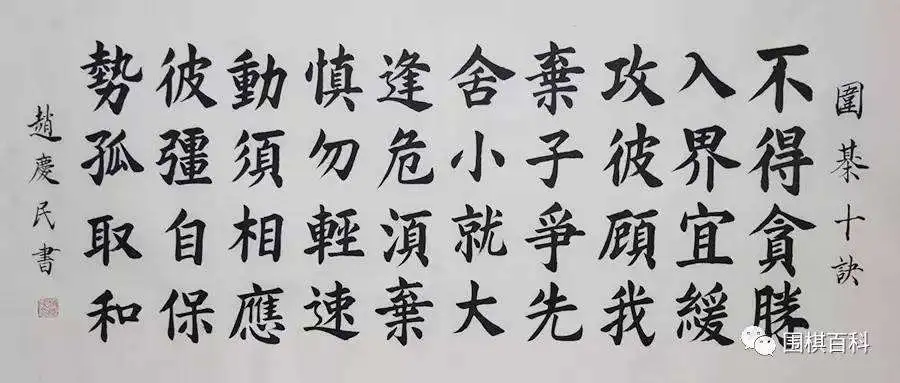 圍棊十訣
不得貪勝
入界宜緩
攻彼顧我
棄子爭先
舍小就大
逢危湏棄
慎勿輕速
動須相應
彼彊自保
勢孤取和
趙慶民書
围棋百科